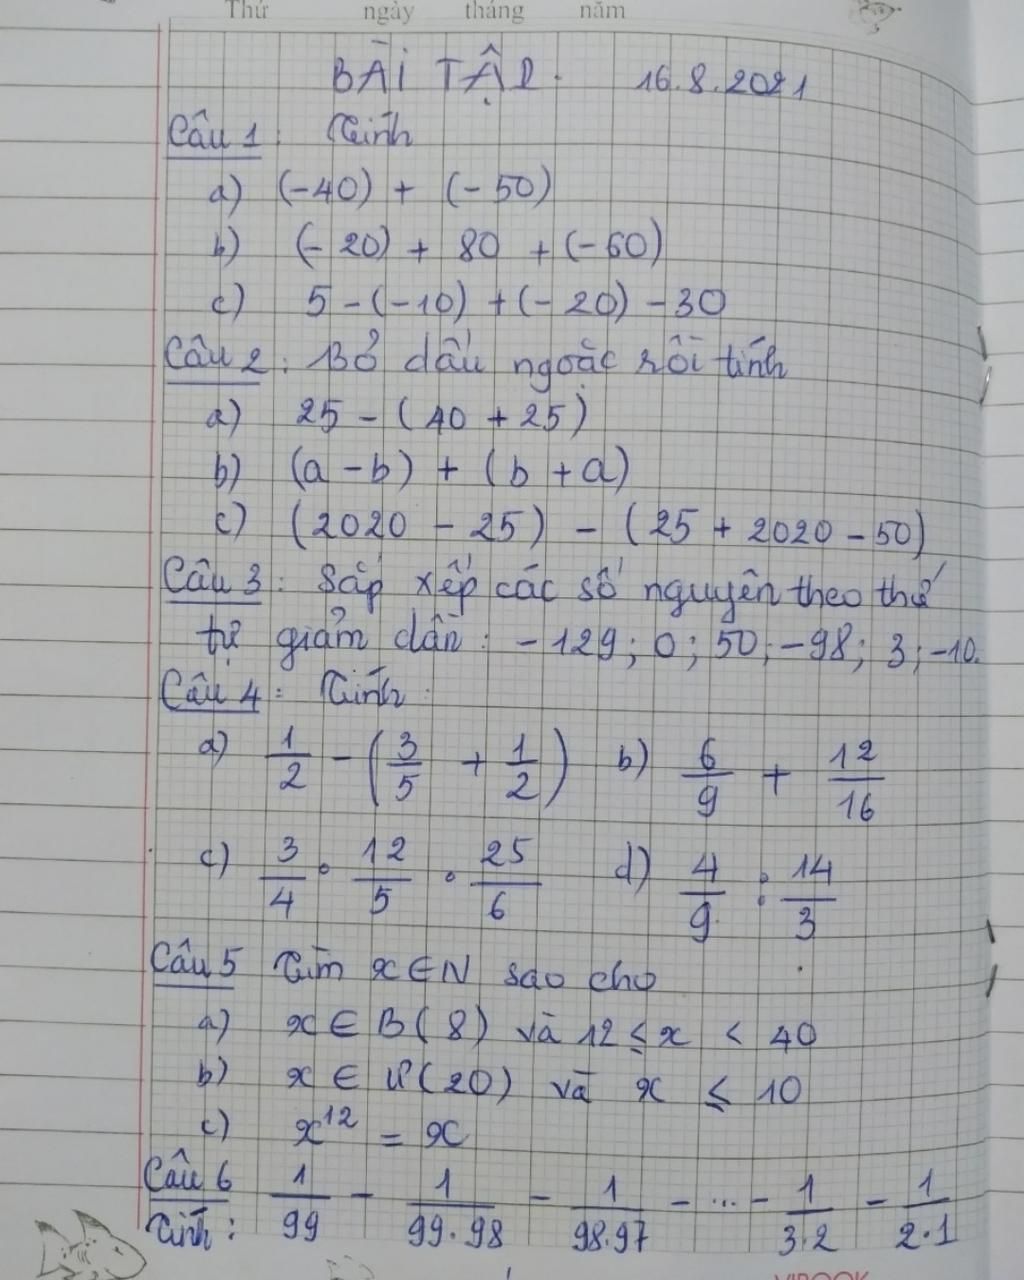 Thứ ngày tháng năm
BÀI TẬP. 16.8.2021
Câu 1: Tính
a) (-40) + (-50)
b) (-20) + 80 + (-60)
c) 5 - (-10) + (-20) - 30
Câu 2: Bỏ dấu ngoặc rồi tính
a) 25 - (40 + 25)
b) (a - b) + (b + a)
c) (2020 - 25) - (25 + 2020 - 50)
Câu 3: Sắp xếp các số nguyên theo thứ
tự giảm dần: -129; 0; 50; -98; 3; -10.
Câu 4: Tính:
a) 1/2 - (3/5 + 1/2) b) 6/9 + 12/16
c) 3/4 . 12/5 . 25/6 d) 4/9 : 14/3
Câu 5 Tìm x ∈ N sao cho
a) x ∈ B(8) và 12 ≤ x < 40
b) x ∈ Ư(20) và x ≤ 10
c) x¹² = x
Câu 6 1/99 - 1/99.98 - 1/98.97 - ... - 1/3.2 - 1/2.1
Tính:
VIBOOK